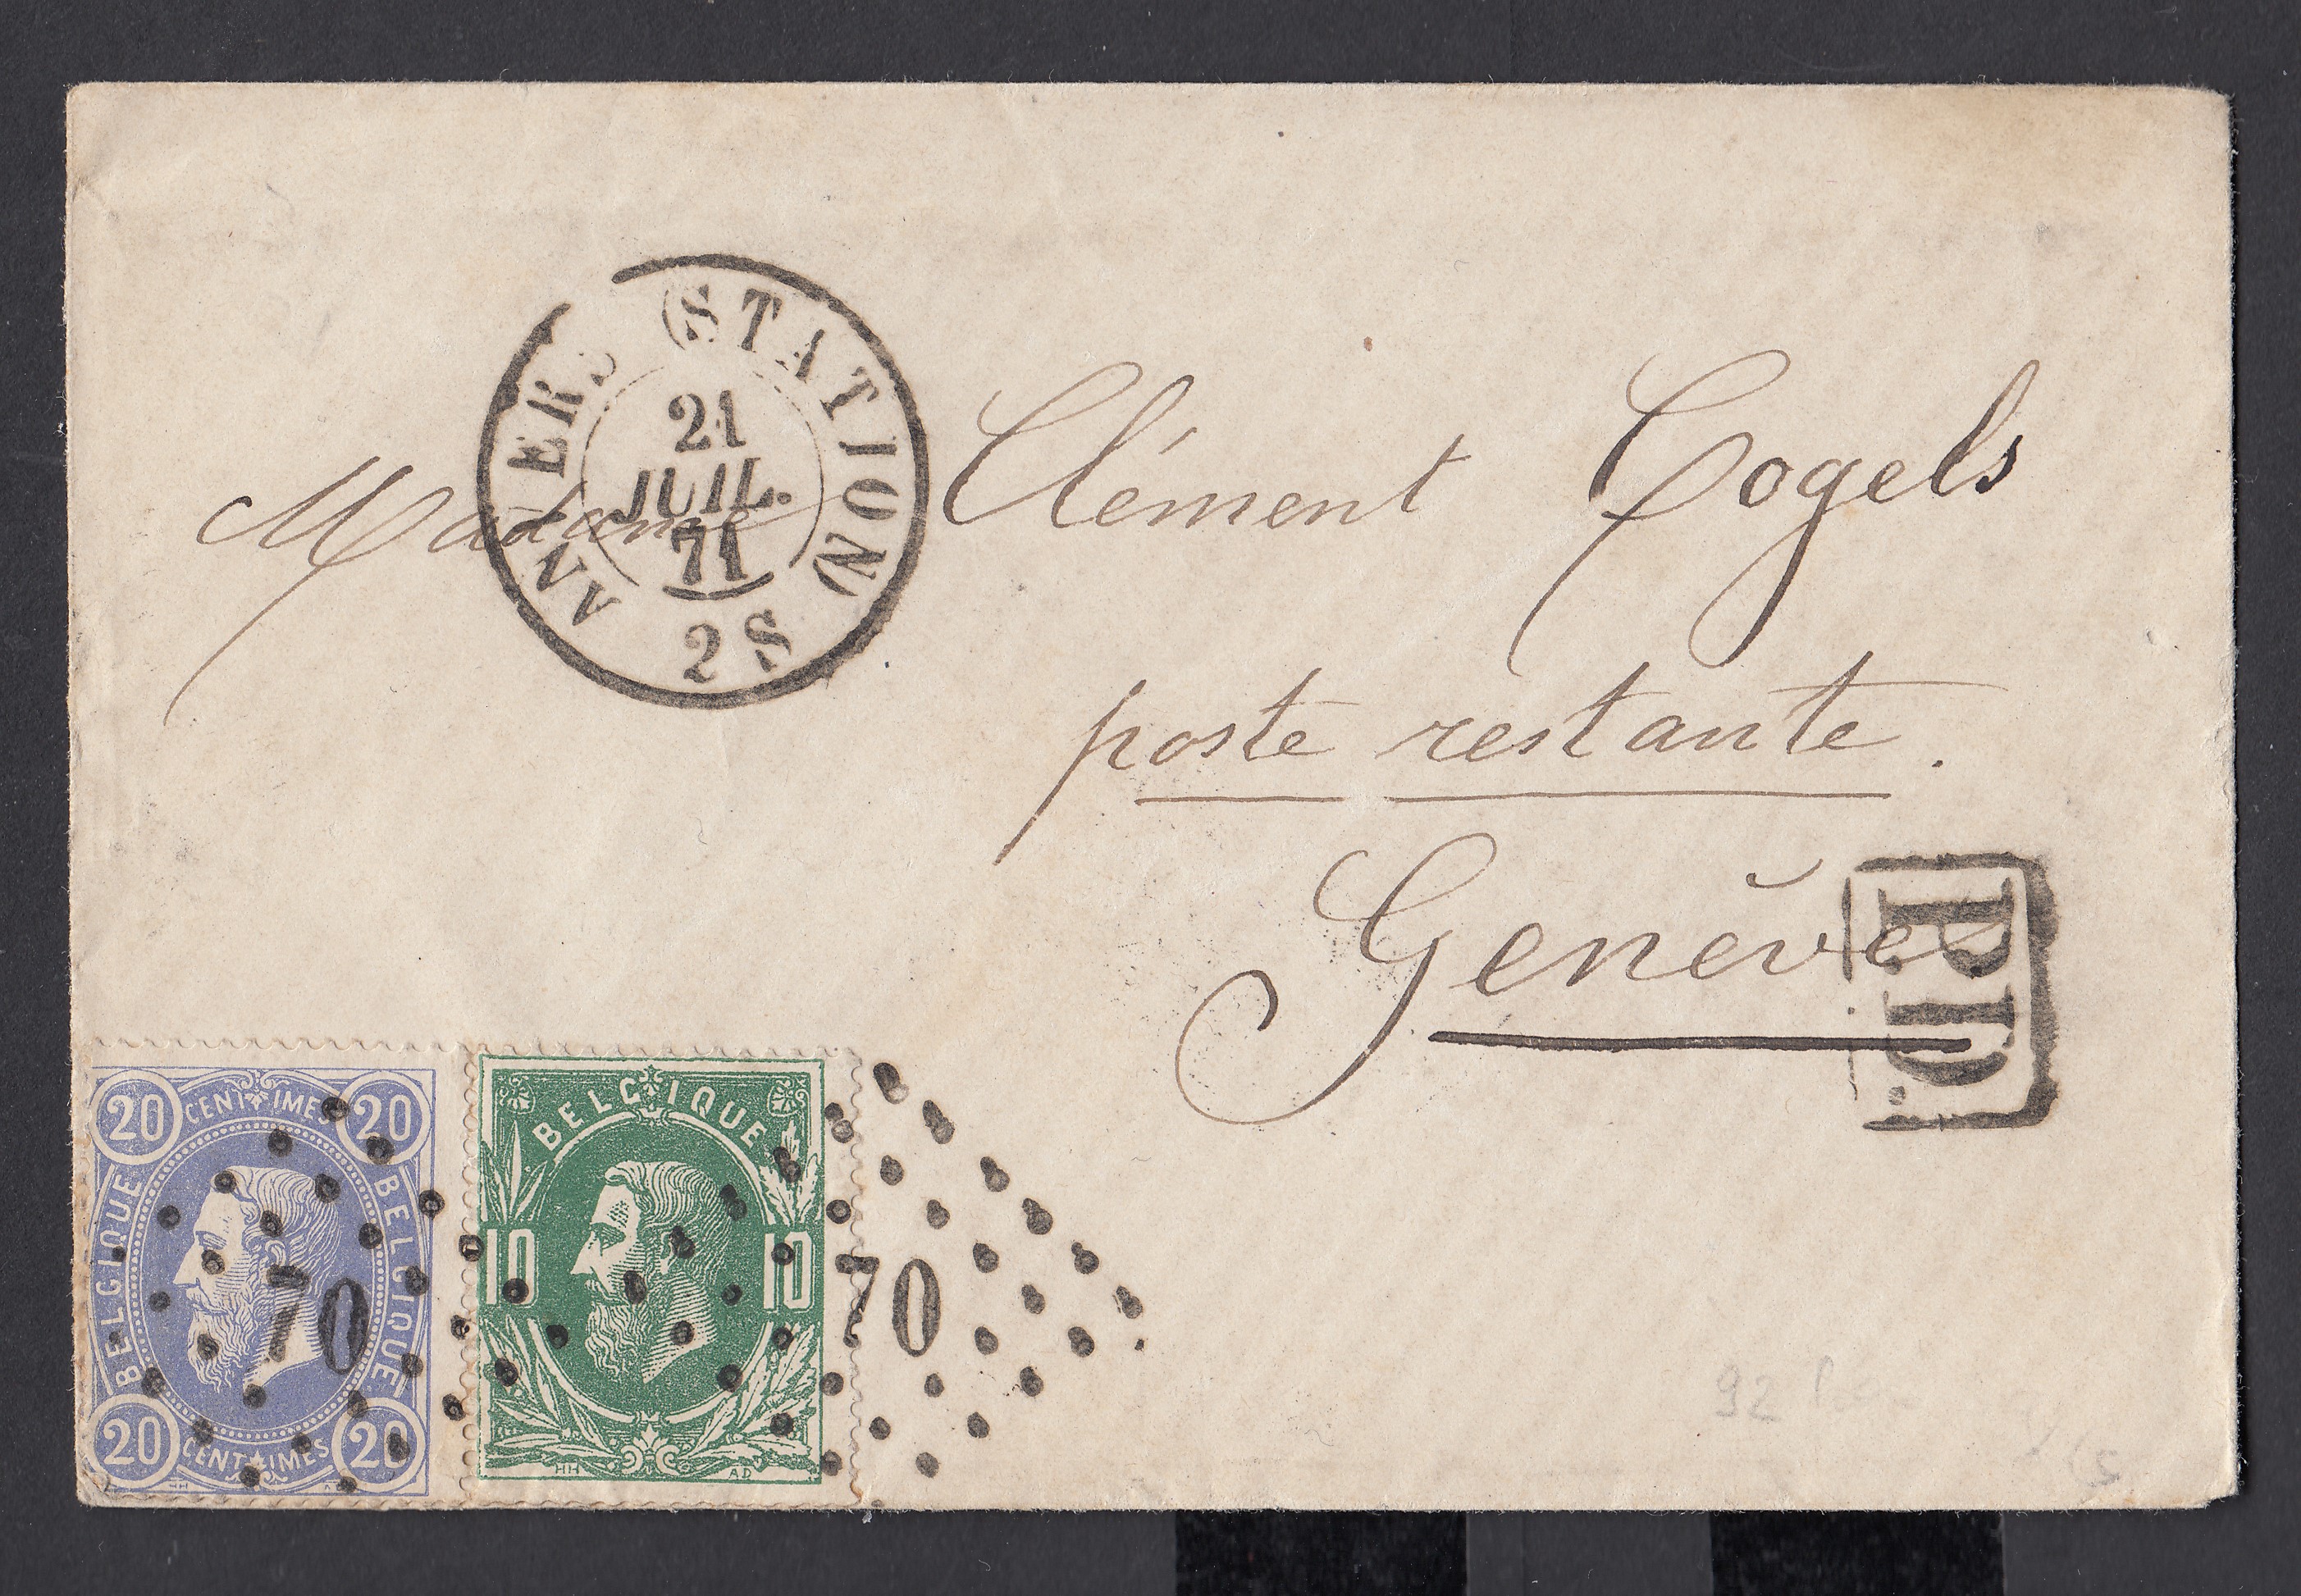 ANVERS (STATION)
21
JUIL.
71
2 S
Madame Clément Cogels
poste restante.
Genève
PD
20 CENTIMES 20
BELGIQUE BELGIQUE
70
20 CENTIMES 20
BELGIQUE
10 10
70
HH AD
92